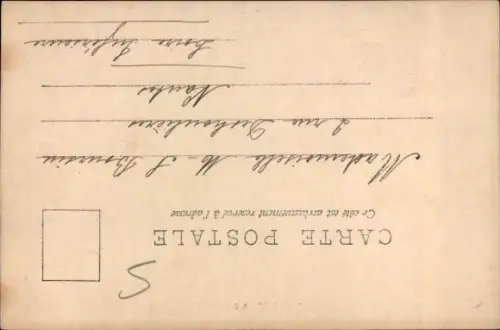 CARTE POSTALE
Ce côté est exclusivement reservé à l'adresse
Mademoiselle M-L Bonnin
2 rue Deshoulières
Nantes
Loire Inférieure
5